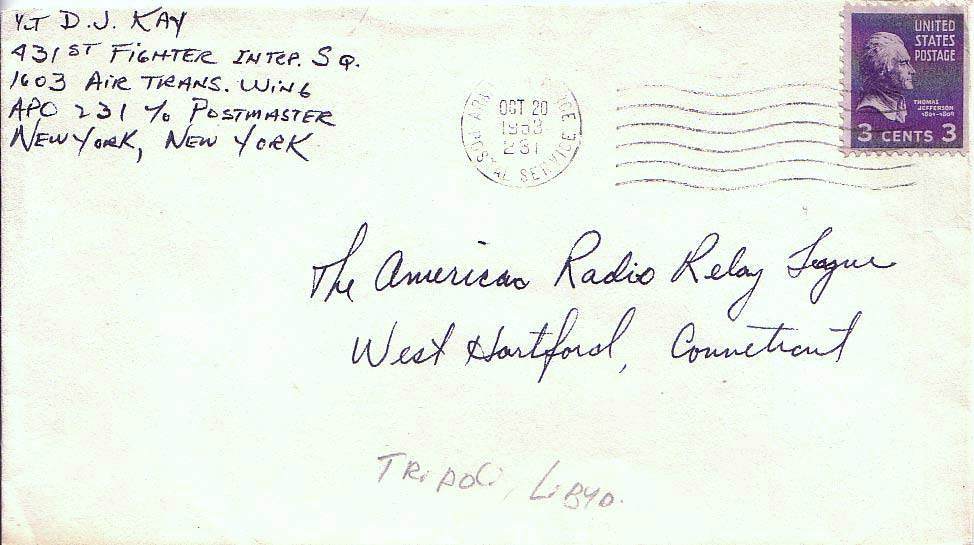 D.J. KAY
431ST FIGHTER INTRP. SQ.
1603 AIR TRANS. WING
APO 231 % POSTMASTER
NEW YORK, NEW YORK
OCT 20
1953
231
POSTAL SERVICE
UNITED
STATES
POSTAGE
THOMAS
JEFFERSON
1801-1809
3 CENTS 3
The American Radio Relay League
West Hartford, Conneticut
TRIPOLI, LIBYA.